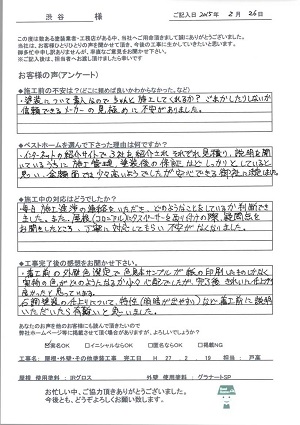 渋谷 様 ご記入日 2015 年 2 月 26 日
この度は数ある塗装業者・工務店がある中、当社へご用命頂きまして誠にありがとうございました。
当社は、お客様ひとりひとりの声を聞かせて頂き、今後の工事に生かしていきたいと思います。
御多忙中申し訳ありませんが、率直なご意見をお聞かせ下さい。
※ご記入後は、担当者へお渡し頂けましたら幸いです
お客様の声(アンケート)
●施工前の不安は?(どこに頼めば良いかわからなかった。など)
・塗装について素人なのでちゃんと施工してくれるか?ごまかしたりしないか
信頼できるメーカーの見極めに不安がありました。
●ベストホームを選んで下さった理由は何ですか?
・インターネットの紹介サイトで3社を紹介され、それぞれ見積り、説明を聞
いているうちに施工管理、塗装後の保証などしっかりとしていると
思い、金額面では少々高いようでしたが安心できる御社に決めました。
●施工中の対応はどうでしたか?
毎日施工進捗の連絡をいただき、どのようなことをしているか判断で
きました。また、屋根(コロニアル)にタスペーサーを取り付けの際、疑問点を
お聞きしたところ、丁寧に対応してもらい不安がなくなりました。
●工事完了後の感想をお聞かせ下さい。
・着工前の外壁色選定で色見本サンプルが紙の印刷したものしかなく
実物の色がどのようになるか少し心配でしたが、完了後きれいに仕上がり
良かったと思っています。
・石調塗装の仕上りについて、特性
など着工前に説明
いただいたら有難いと思いました。
あなたのお声を他のお客様にも読んで頂きたいので
弊社ホームページ等に掲載させて頂く場合がありますが、よろしいでしょうか?
☑実名OK □イニシャルならOK □匿名ならOK □掲載NG
工事名: 屋根・外壁・その他塗装工事 完工日 H 27 . 2 . 19 担当: 戸高
屋根 使用塗料: IRグロス 外壁 使用塗料: グラナートSP
お忙しい中、ご協力頂きありがとうございました。
今後とも、どうぞよろしくお願い致します。